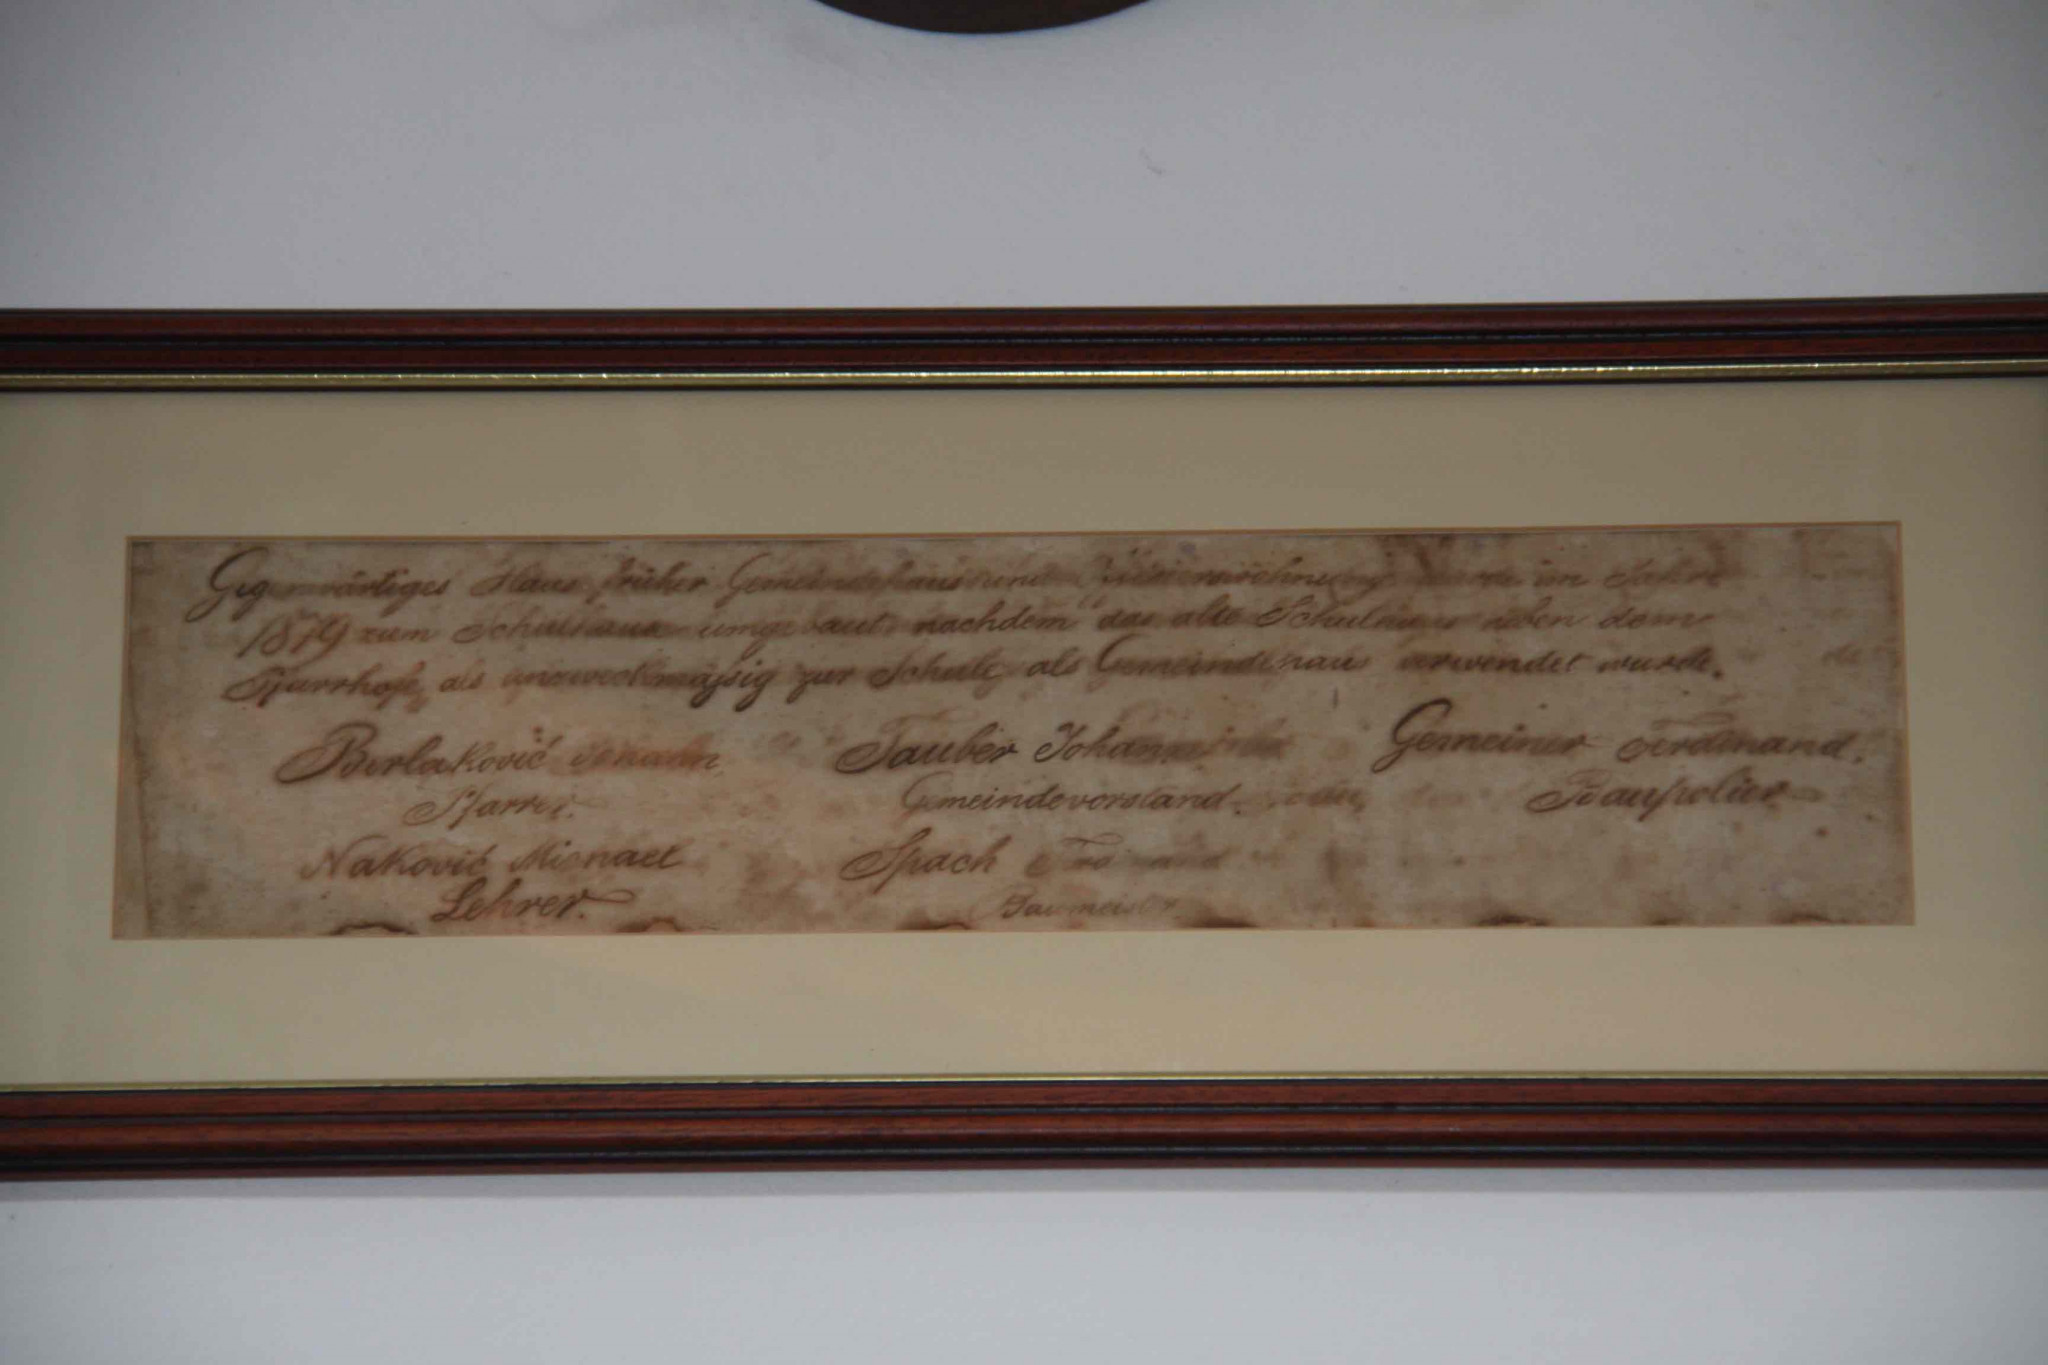 Gegenwärtiges Haus früher Gemeindehaus und wurde im Jahre
1879 zum Schulhaus umgebaut, nachdem das alte Schulhaus neben dem
Pfarrhofe, als unzweckmäßig zur Schule als Gemeindehaus verwendet wurde.
Berlaković Tauber Johann Gemeiner Ferdinand.
Pfarrer. Gemeindevorstand. Baupolier
Naković Michael Spach
Lehrer. Baumeister